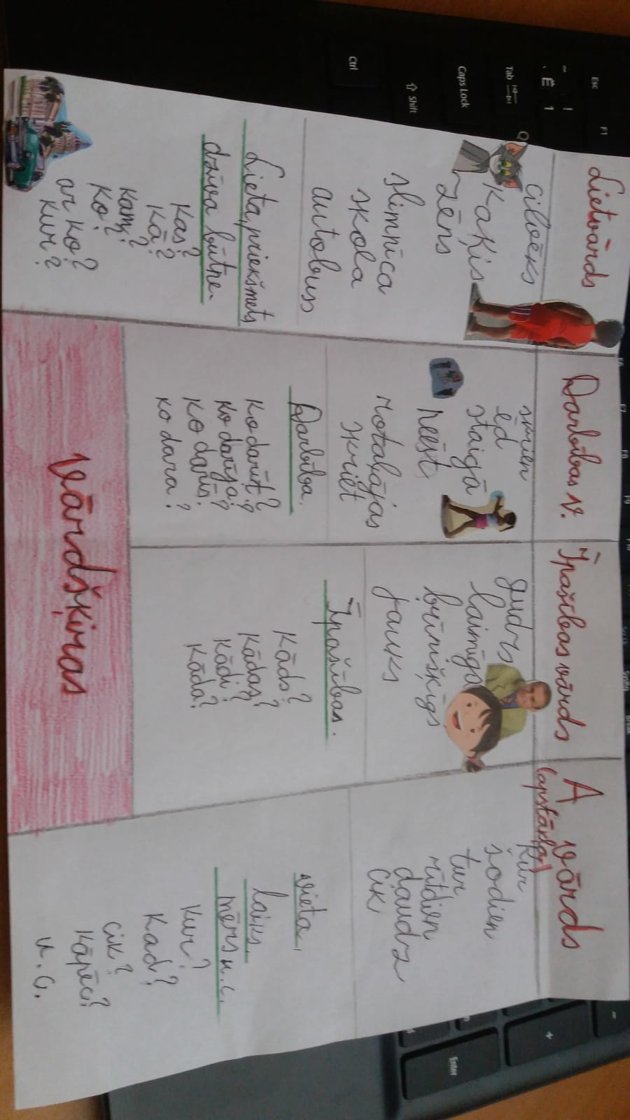 Lietvārds
cilvēks
kaķis
zēns
slimnīca
skola
autobuss
Lieta, priekšmets
dzīva būtne.
Kas?
Kā?
Kam?
Ko?
ar ko?
kur?
Darbības v.
smien
ēd
staigā
neēst
rotaļājas
skriet
Darbība.
Ko darīt?
Ko darīja?
Ko darīs?
Ko dara?
Īpašības vārds
gudrs
laimīga
brūnišķīgs
jauks
Īpašības.
Kāds?
Kādas?
Kādi?
Kāda?
A vārds
(apstākļa)
kur
šodien
tur
rītdien
daudz
cik
vieta,
laiks,
mērs u.c.
Kur?
Kad?
cik?
Kāpēc?
u.c.
Vārdšķiras
Esc
F1
Tab
Q
Caps Lock
Shift
Ctrl
Enter